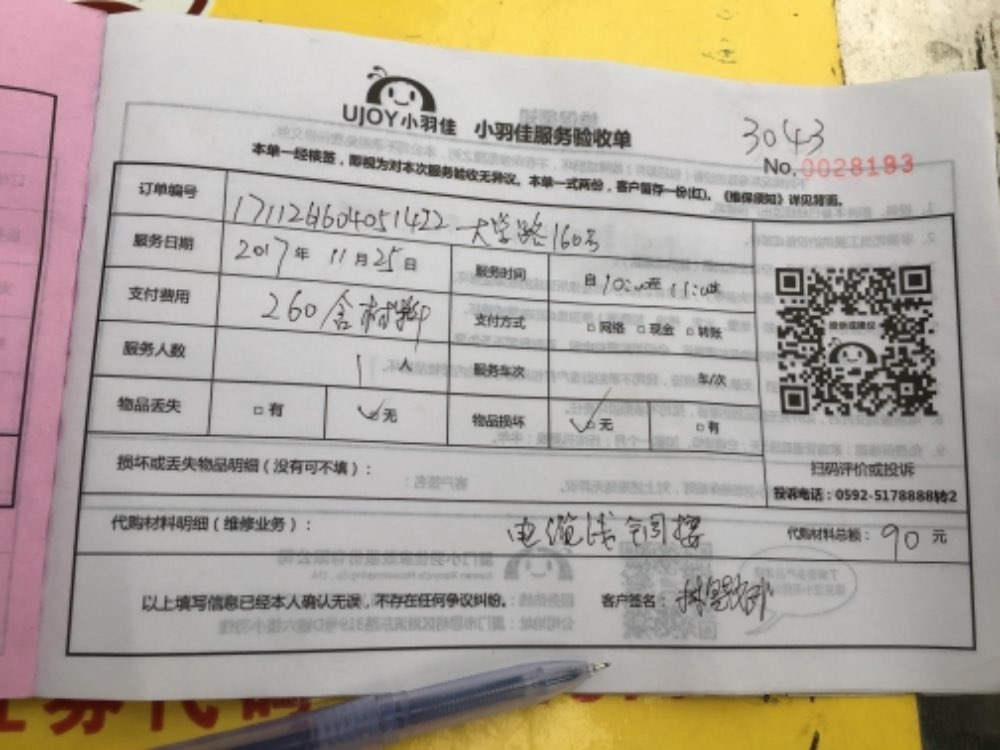 UJOY小羽佳 小羽佳服务验收单
3043
No. 0028193
本单一经核签，即视为对本次服务验收无异议。本单一式两份，客户留存一份(红)。《维保须知》详见背面。
订单编号 大学路160号
服务日期 2017年 11月25日 服务时间 自10:00至11:00止
支付费用 260含材料 支付方式 □网络 □现金 □转账
服务人数 1人 服务车次 车/次
物品丢失 □有 ✓无 物品损坏 ✓□无 □有
损坏或丢失物品明细（没有可不填）：
扫码评价或投诉
投诉电话：0592-5178888转2
代购材料明细（维修业务）： 电缆线 代购材料总额：90元
以上填写信息已经本人确认无误，不存在任何争议纠纷。 客户签名：